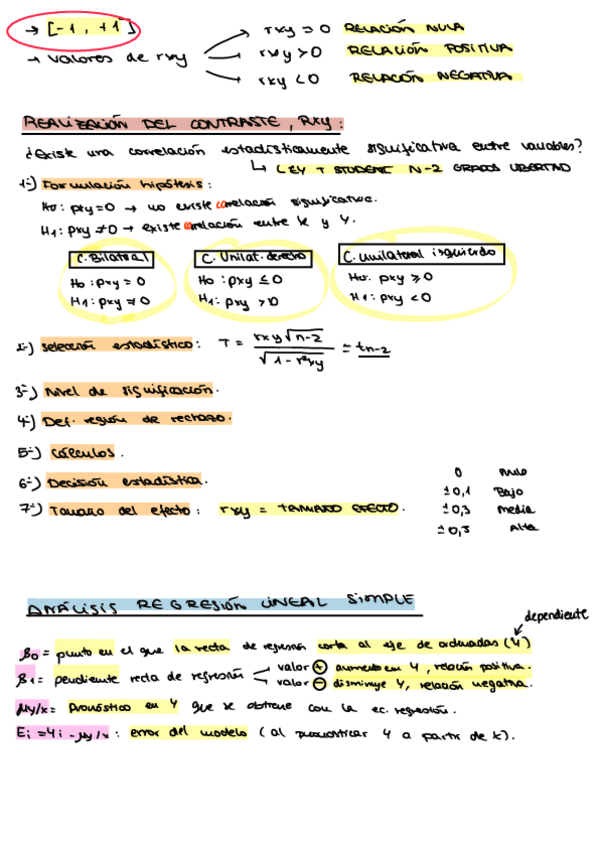 → [-1, +1]
→ valores de rxy
rxy = 0 RELACIÓN NULA
rxy > 0 RELACIÓN POSITIVA
rxy < 0 RELACIÓN NEGATIVA
REALIZACIÓN DEL CONTRASTE, Rxy:
¿Existe una correlación estadísticamente significativa entre variables?
↳ LEY T STUDENT N-2 GRADOS LIBERTAD
1-) Formulación hipótesis:
H0: ρxy = 0 → no existe correlación significativa.
H1: ρxy ≠ 0 → existe correlación entre X y Y.
C. Bilateral
H0: ρxy = 0
H1: ρxy ≠ 0
C. Unilat. derecho
H0: ρxy ≤ 0
H1: ρxy > 0
C. unilateral izquierdo
H0: ρxy ≥ 0
H1: ρxy < 0
2-) Selección estadístico: T = rxy √n-2 / √1 - r²xy = tn-2
3-) Nivel de significación.
4-) Def. región de rechazo.
5-) Cálculos.
6-) Decisión estadística.
7-) Tamaño del efecto: rxy = TAMAÑO EFECTO.
0 Nulo
±0,1 Bajo
±0,3 Media
±0,5 Alta
ANÁLISIS REGRESIÓN LINEAL SIMPLE
dependiente
β0 = punto en el que la recta de regresión corta al eje de ordenadas (Y)
β1 = pendiente recta de regresión
valor + aumento en Y, relación positiva.
valor - disminuye Y, relación negativa.
μy/x = Pronóstico en Y que se obtiene con la ec. regresión.
Ei = Yi - μy/x: error del modelo (al pronosticar Y a partir de X).